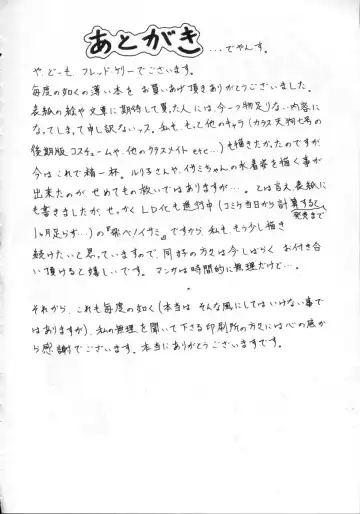 あとがき …でやんす。
や、どーも、フレッド・ケリーでございます。
毎度の如くの薄い本をお買いあげ頂きありがとうございました。
表紙の絵や文章に期待して買った人には、今一つ物足りない内容に
なってしまって申し訳ないッス。私も、もっと他のキャラ(カラス天狗七号の
後期版コスチュームや、他のクラスメイトetc…)も描きたかったのですが、
今はこれで精一杯。ルリ子さんや、イサミちゃんの水着姿を描く事が
出来たのが、せめてもの救いではありますが…。とは言え表紙に
も書きましたが、せっかくLD化も進行中(コミケ当日から計算すると、発売まで
1ヶ月足らず…)の『飛べ!イサミ』ですから、私も、もう少し描き
続けたいと思っていますので、同好の方々は今しばらくお付き合
い頂けると嬉しいです。マンガは時間的に無理だけど…。
・
それから、これも毎度の如く(本当はそんな風にしてはいけない事で
はありますが)、私の無理を聞いて下さる印刷所の方々には心の底か
ら感謝でございます。本当にありがとうございますです。